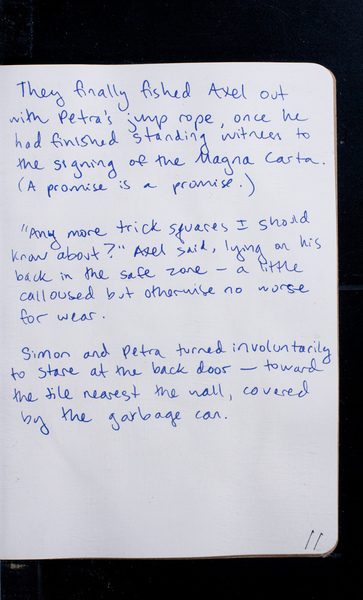 They finally fished Axel out
with Petra's jump rope, once he
had finished standing witness to
the signing of the Magna Carta.
(A promise is a promise.)
"Any more trick squares I should
know about?" Axel said, lying on his
back in the safe zone — a little
calloused but otherwise no worse
for wear.
Simon and Petra turned involuntarily
to stare at the back door — toward
the tile nearest the wall, covered
by the garbage can.
11